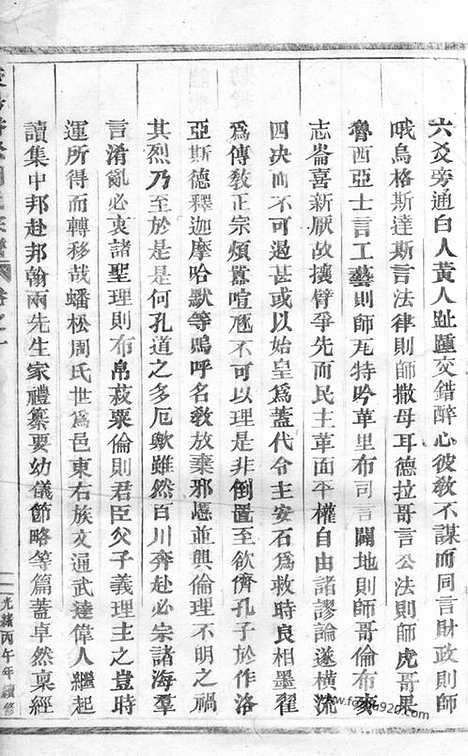 六爻旁通白人黃人趾踵交錯醉心彼敎不謀而同言財政則師
哦烏格斯達斯言法律則師撒母耳德拉哥言公法則師虎哥果
魯西亞士言工藝則師瓦特吟革里布司言闢地則師哥倫布家
志崙喜新厭故攘臂爭先而民主革面平權自由諸謬論遂橫流
四決而不可過甚或以始皇爲蓋代令主安石爲救時良相墨翟
爲傳敎正宗煩囂喧豗不可以理是非倒置至欲儕孔子於作洛
亞斯德釋迦摩哈默等嗚呼名敎放棄邪慝並興倫理不明之禍
其烈乃至於是是何孔道之多厄歟雖然百川奔赴必宗諸海羣
言淆亂必衷諸聖理則布帛菽粟倫則君臣父子義理主之豈時
運所得而轉移哉蟠松周氏世爲邑東右族文通武達偉人繼起
讀集中邦赴邦翰兩先生家禮纂要幼儀節略等篇蓋卓然稟經
光緒丙午年續修